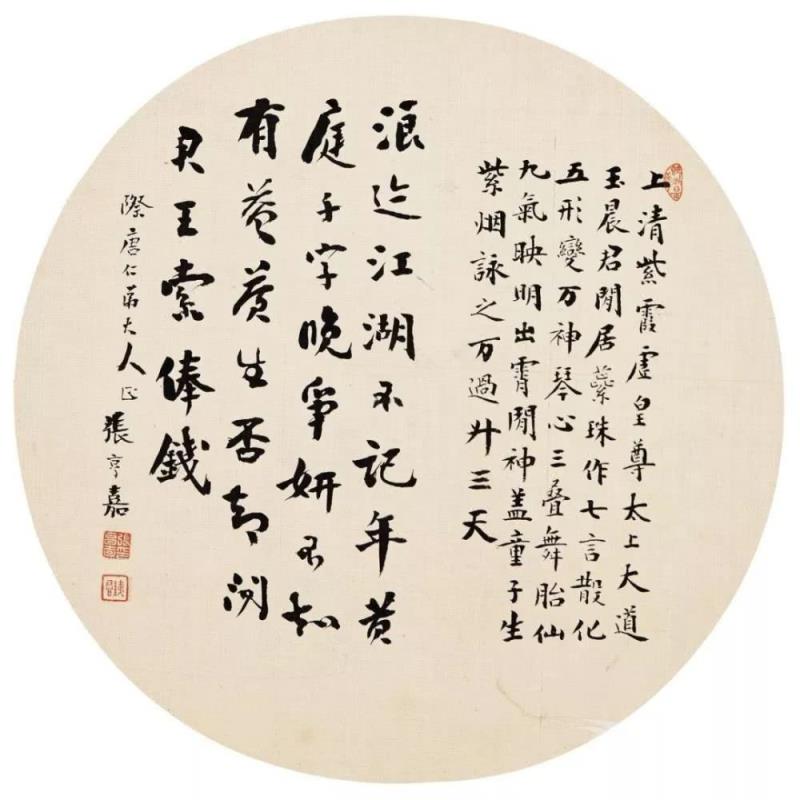 上清紫霞虛皇尊太上大道
玉晨君閒居蘂珠作七言散化
五形變万神琴心三疊舞胎仙
九氣映明出霄閒神盖童子生
紫烟詠之万過升三天
浪迹江湖不記年黄
庭千字晚爭妍不知
有益養生否却問
君王索俸錢
際唐仁弟大人正
張亨嘉